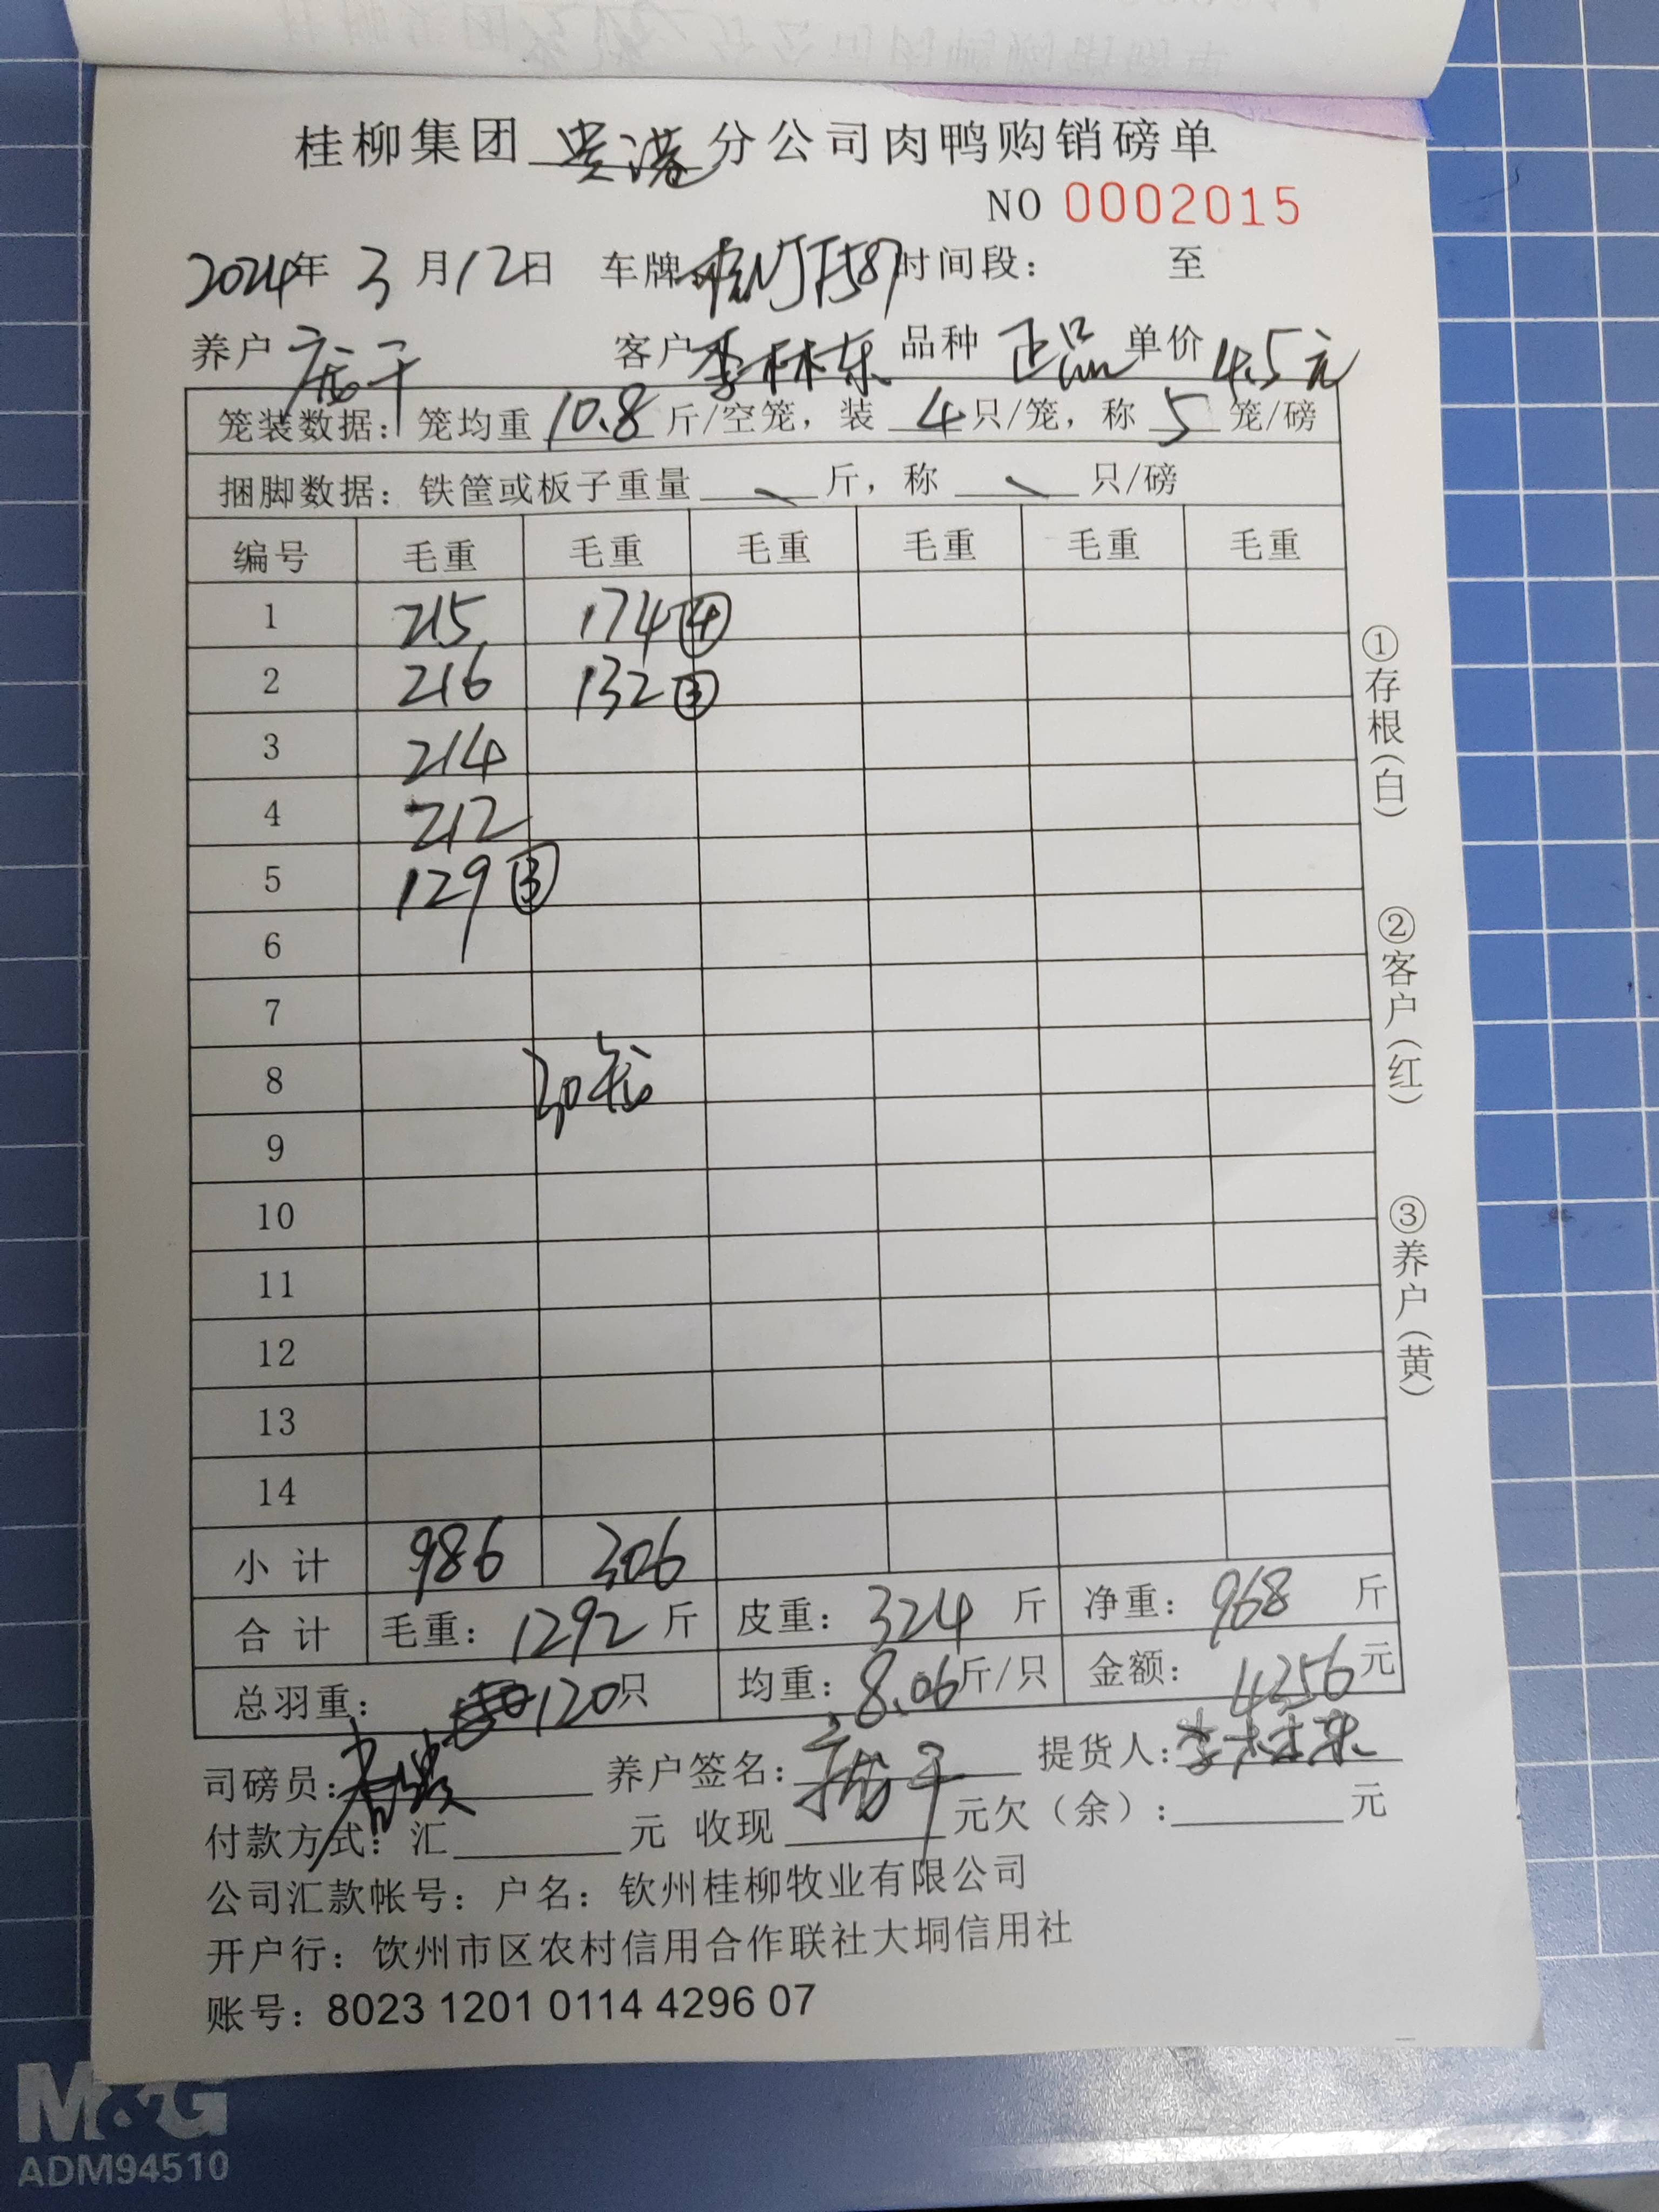 桂柳集团 贵港 分公司肉鸭购销磅单
NO 0002015
2024年 3 月 12日 车牌 时间段： 至
养户 客户 李林东 品种 正品 单价 4.5元
笼装数据：笼均重 10.8 斤/空笼，装 4 只/笼，称 5 笼/磅
捆脚数据：铁筐或板子重量 斤，称 只/磅
编号 毛重 毛重 毛重 毛重 毛重 毛重
1 215 174 ④
2 216 132 ③
3 214
4 212
5 129 ③
6
7
8 30笼
9
10
11
12
13
14
小 计 986 306
合 计 毛重： 1292 斤 皮重： 324 斤 净重： 968 斤
总羽重： 120只 均重：8.06斤/只 金额： 4256元
司磅员： 养户签名： 提货人：李林东
付款方式：汇 元 收现 元欠（余）： 元
公司汇款帐号：户名：钦州桂柳牧业有限公司
开户行：饮州市区农村信用合作联社大垌信用社
账号：8023 1201 0114 4296 07
①存根（白）
②客户（红）
③养户（黄）
M&G
ADM94510